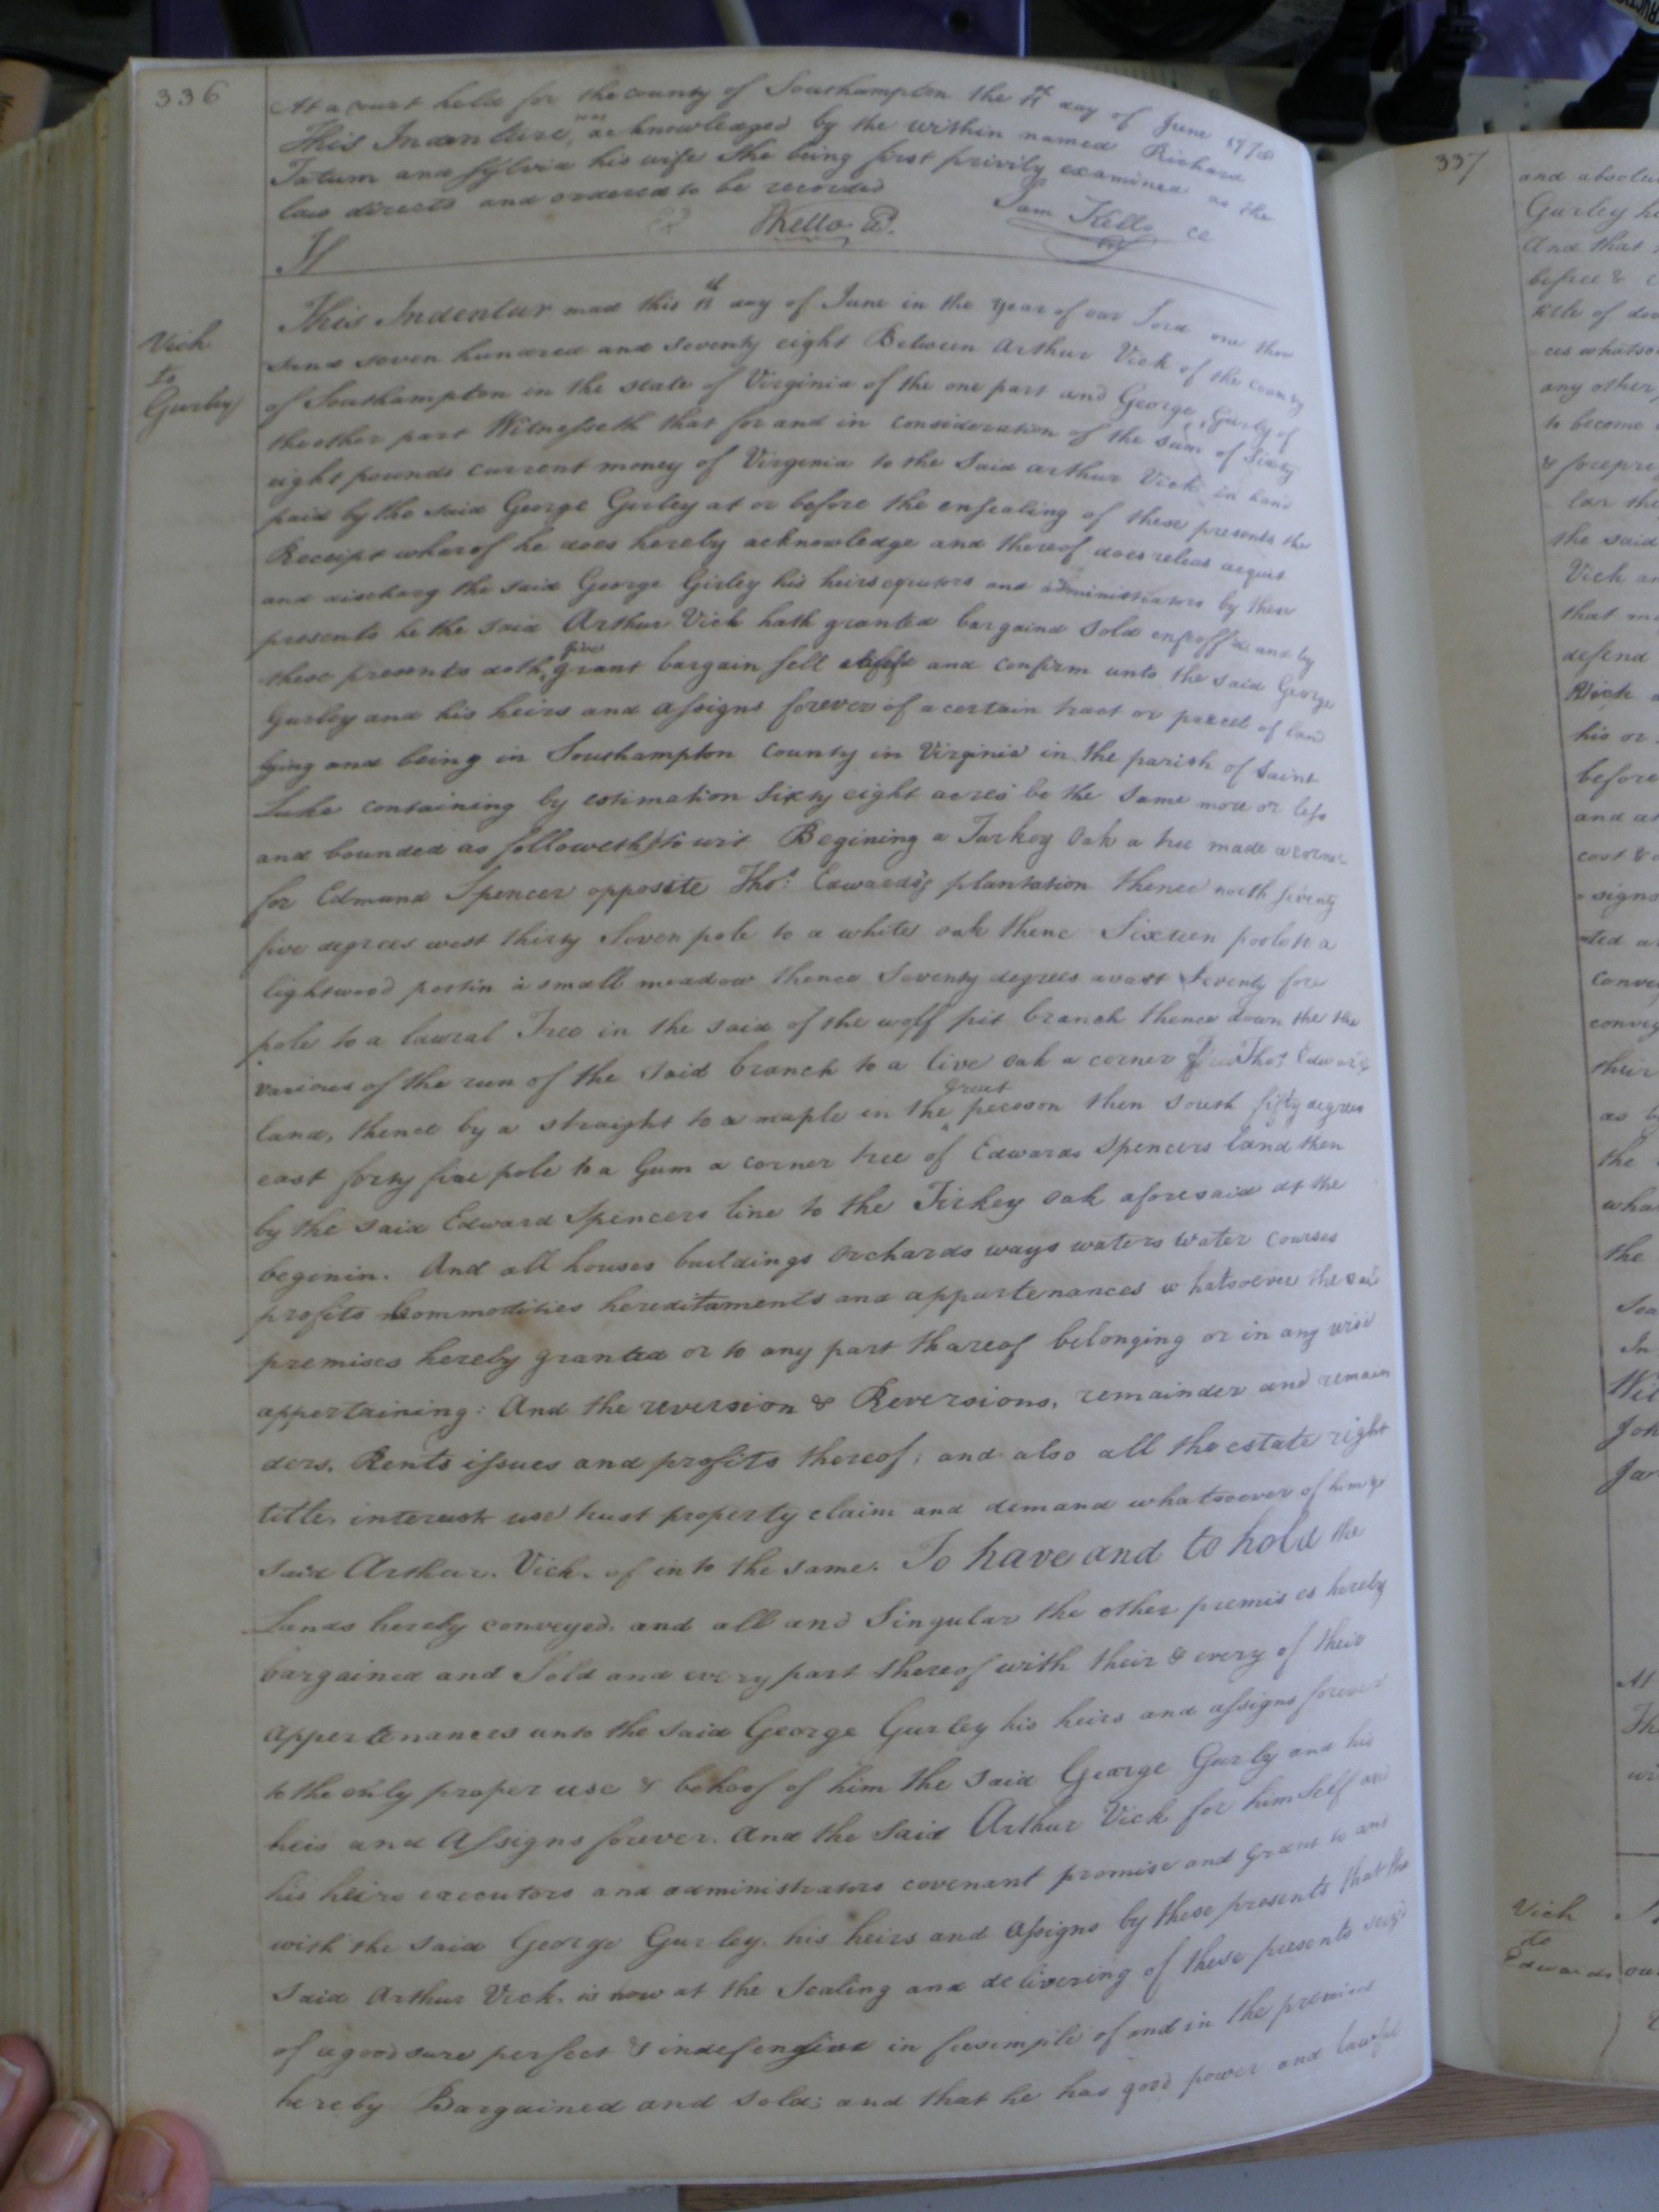 336
At a court held for the county of Southampton the 11th day of June 1778
This Indenture was acknowledged by the within named Richard
Tatum and Sylvia his wife she being first privily examined as the
law directs and ordered to be recorded
Sam Kello cc
Vick
to
Gurley
This Indentur mad this 11th day of June in the year of our Lord one thou
sand seven hundred and seventy eight Between Arthur Vick of the County
of Southampton in the state of Virginia of the one part and George Gurly of
the other part Witnesseth that for and in consideration of the sum of Sixty
eight pounds current money of Virginia to the Said arthur Vick in hand
paid by the said George Gurley at or before the ensealing of these presents the
Receipt wharof he does hereby acknowledge and thereof does releas acquit
and discharg the said George Girley his heirs and administrators by these
presents he the said Arthur Vick hath granted bargaind Sold enfeoff'd and by
these presents doth give grant bargain sell and confirm unto the said George
Gurley and his heirs and assigns forever of a certain tract or parcel of land
lying and being in Southampton County in Virginia in the parish of Saint
Luke containing by estimation Sixty eight acres be the Same more or less
and bounded as followeth) to wit Begining a Turkey Oak a tree made a corner
for Edmund Spencer opposite Thos. Edwards's plantation thence north Seventy
five degrees west thirty Seven pole to a white oak thenc Sixteen to a
lightwood post in a small meadow thence Seventy degrees Seventy
pole to a lawral Tree in the said of the wolf pit branch thence down the the
various of the run of the Said branch to a live oak a corner Thos. Edwards
land, thence by a straight to a maple in the great pecoson then South fifty degrees
east forty five pole to a Gum a corner tree of Edwards Spencers land then
by the said Edward Spencers line to the Tirkey oak aforesaid at the
beginin. And all houses buildings Orchards ways waters water Courses
profits Commodities hereditaments and appurtenances whatsoever the said
premises hereby granted or to any part thareof belonging or in any wise
appertaining: And the reversion & Reversions, remainder and remain
ders, Rents issues and profits thereof; and also all the estate right
title, interest use trust property claim and demand whatsoever of him ye
said Arthur. Vick. of in to the same. To have and to hold the
Lands hereby conveyed, and all and Singular the other premises hereby
bargained and Sold and every part thereof with their & every of their
appertenances unto the said George Gurley his heirs and assigns forever
to the only proper use & behoof of him the said George Gurly and his
heis and Assigns forever. And the Said Arthur Vick for him Self and
his heirs executors and administrators covenant promise and Grant to and
with the said George Gurley. his heirs and Assigns by these presents that the
Said Arthur Vick. is now at the Sealing and delivering of these presents
of a good sure perfect & in feesimple of and in the premises
hereby Bargained and sold; and that he has good power and lawful
337
and
Gurley
And that
before &
any other
to become
the said
Vick
that
defend
his or
before
and
cost &
signs
their
as
the
the
In
At
Vick
to
Edwards